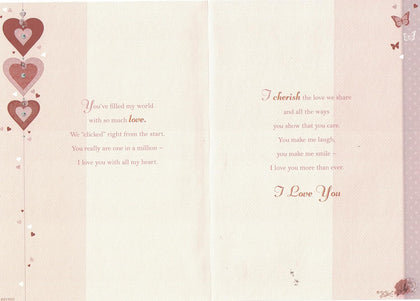 You've filled my world
with so much love.
We "clicked" right from the start.
You really are one in a million –
I love you with all my heart.
I cherish the love we share
and all the ways
you show that you care.
You make me laugh,
you make me smile –
I love you more than ever.
I Love You